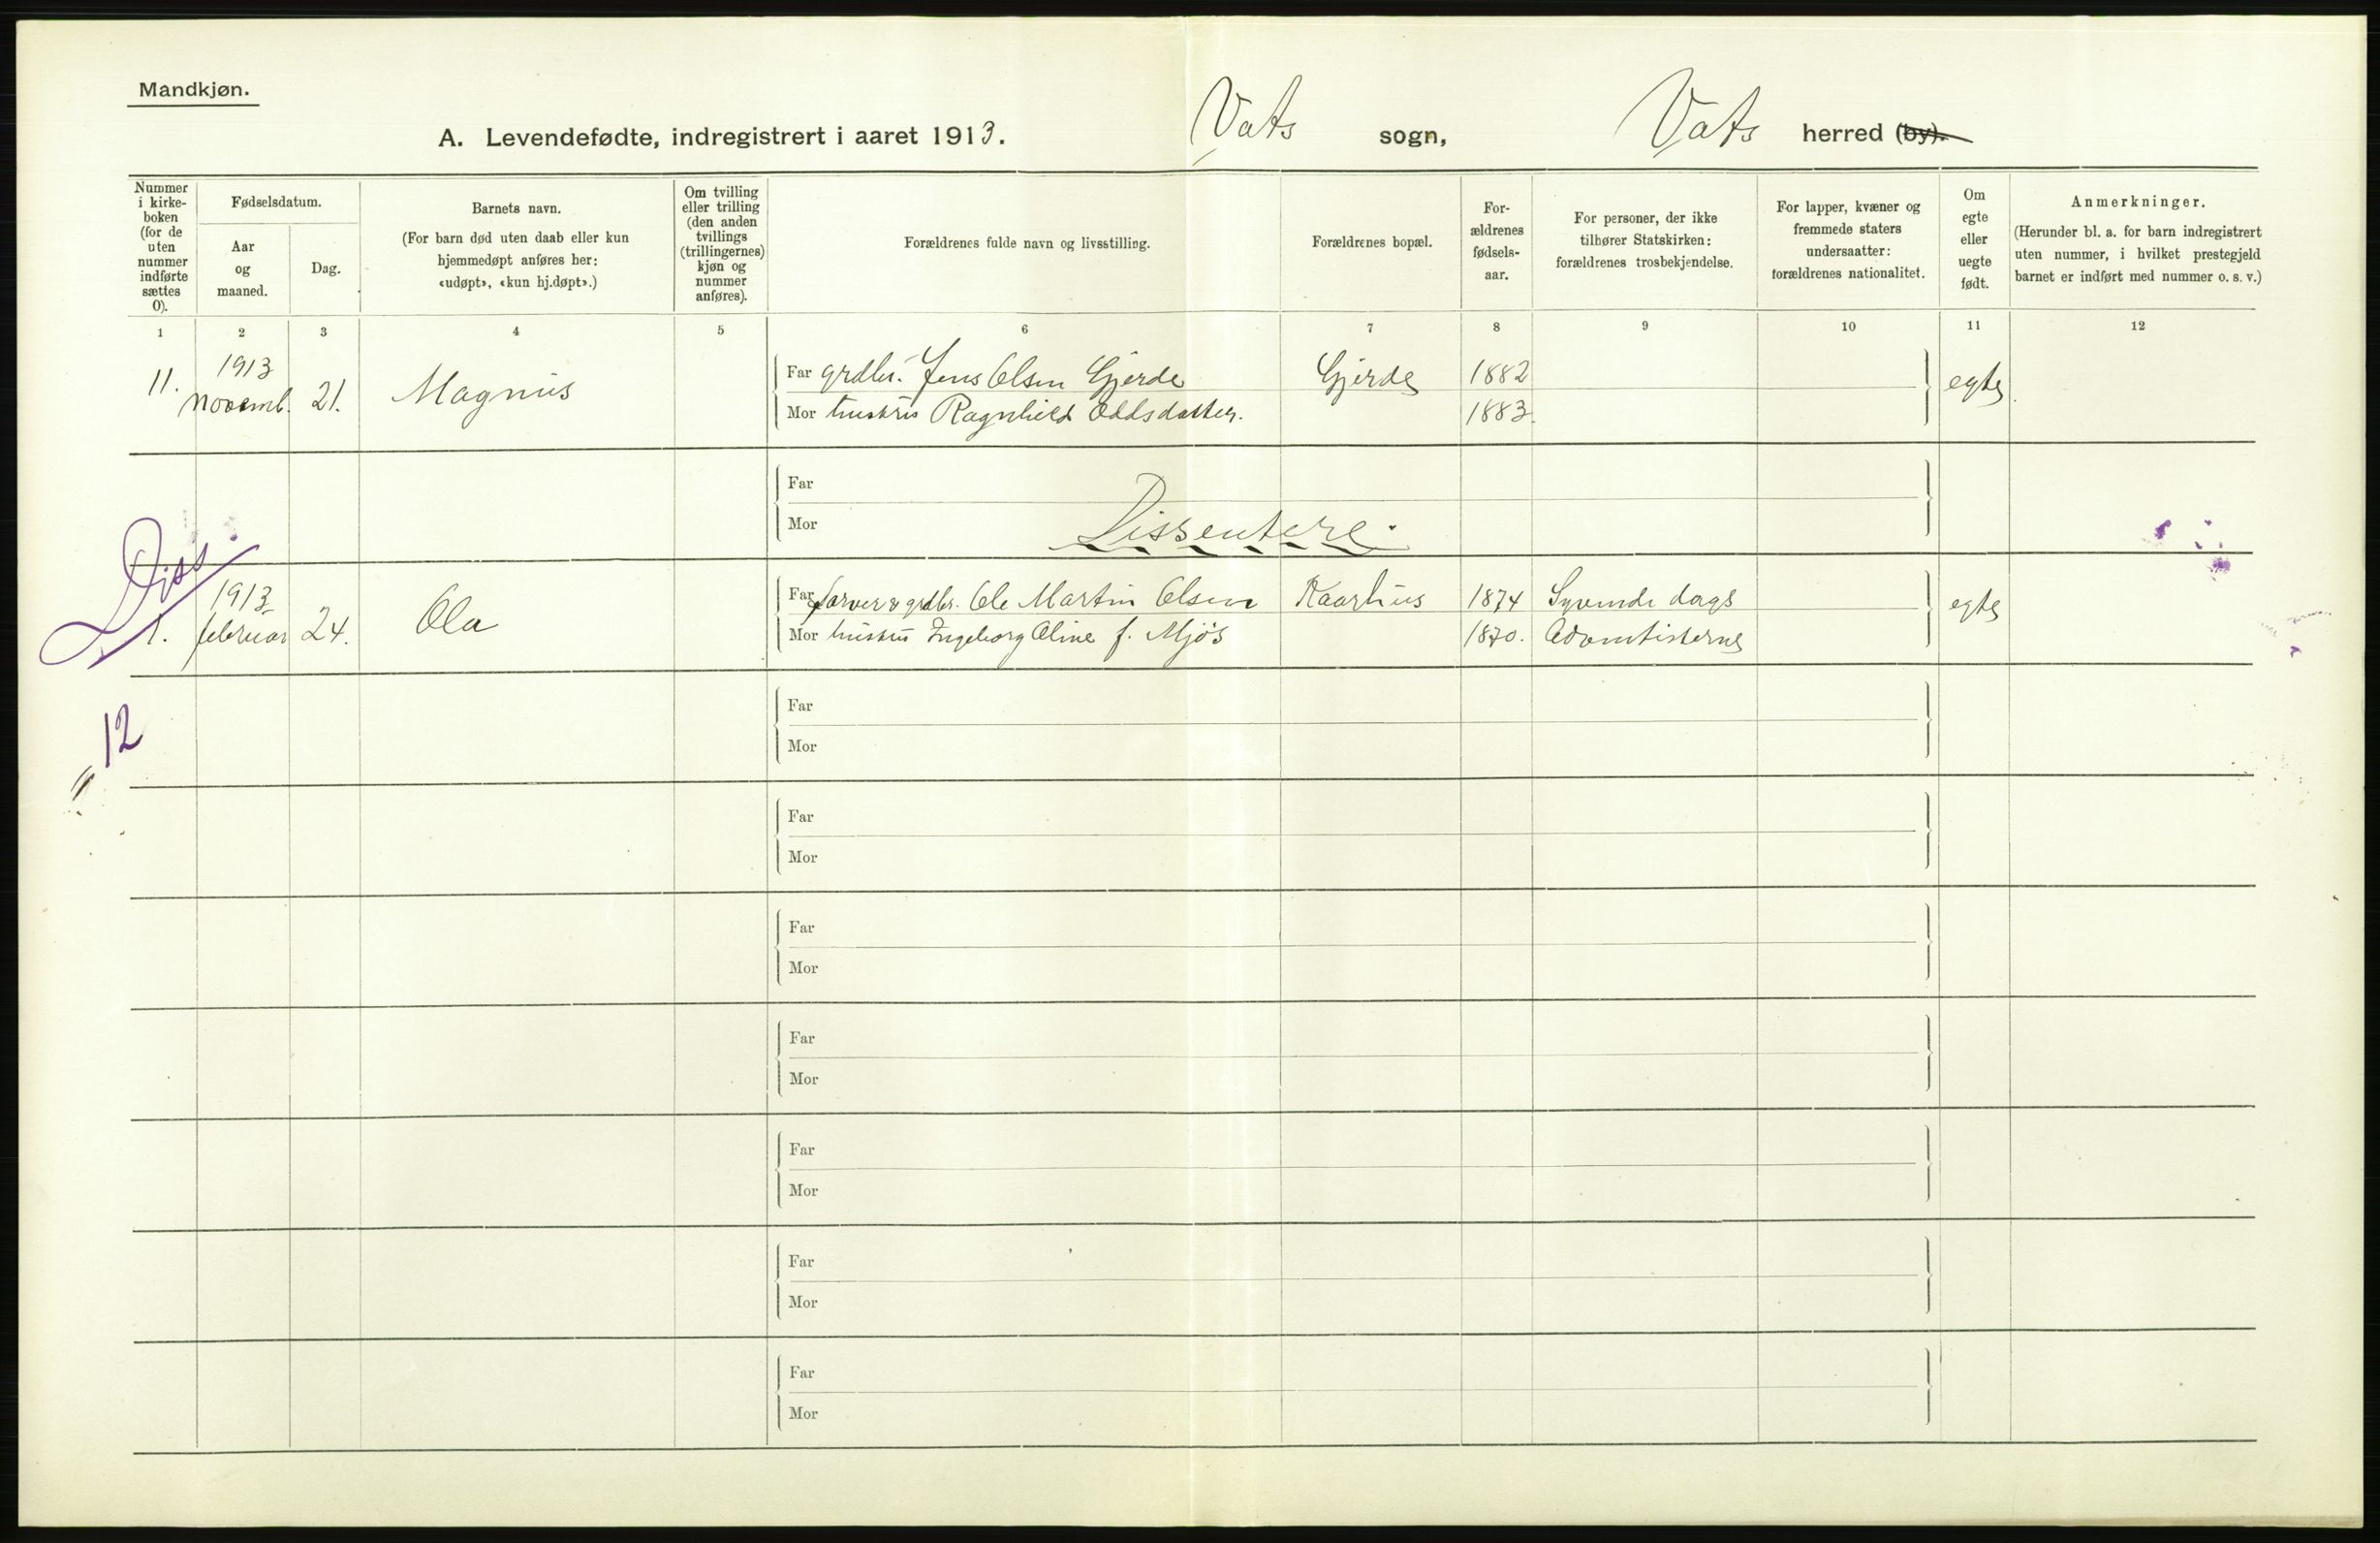 Mandkjøn.
A. Levendefødte, indregistrert i aaret 1913. Vats sogn, Vats herred (by).
Nummer i kirke-boken (for de uten nummer indførte sættes 0).
Fødselsdatum.
Aar og maaned.
Dag.
Barnets navn.
(For barn død uten daab eller kun
hjemmedøpt anføres her:
«udøpt», «kun hj.døpt».)
Om tvilling
eller trilling
(den anden
tvillings
(trillingernes)
kjøn og
nummer
anføres).
Forældrenes fulde navn og livsstilling.
Forældrenes bopæl.
For-
ældrenes
fødsels-
aar.
For personer, der ikke
tilhører Statskirken:
forældrenes trosbekjendelse.
For lapper, kvæner og
fremmede staters
undersaatter:
forældrenes nationalitet.
Om
egte
eller
uegte
født.
Anmerkninger.
(Herunder bl. a. for barn indregistrert
uten nummer, i hvilket prestegjeld
barnet er indført med nummer o. s. v.)
1 2 3 4 5 6 7 8 9 10 11 12
11. 1913 novemb. 21. Magnus
Far grdbr. Jens Olsen Gjerde Gjerde 1882 egte
Mor hustru Ragnhild Oddsdatter. 1883.
Far
Mor
Dissentere.
Diss.
1. 1913 februar 24. Ola
Far farver & grdbr. Ole Martin Olsen Kaarhus 1874 Syvende dags egte
Mor hustru Ingeborg Oline f. Mjøs 1870. Adventisterne
12
Far
Mor
Far
Mor
Far
Mor
Far
Mor
Far
Mor
Far
Mor
Far
Mor